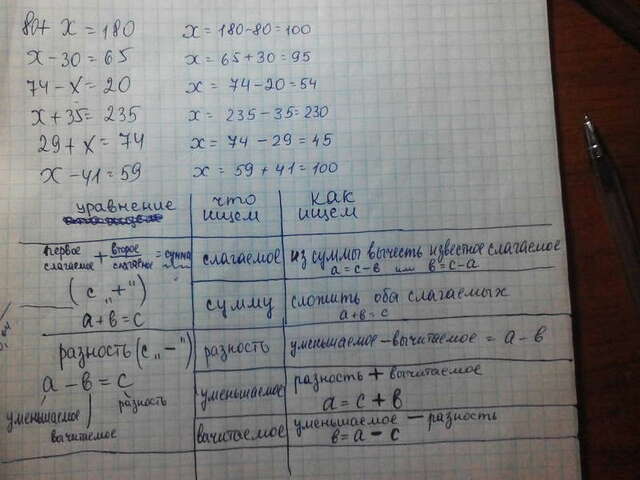 80+ x = 180 x = 180-80 = 100
x - 30 = 65 x = 65+30 = 95
74 - x = 20 x = 74-20 = 54
x + 35 = 235 x = 235-35 = 230
29 + x = 74 x = 74-29 = 45
x - 41 = 59 x = 59 + 41 = 100
уравнение что ищем как ищем
первое слагаемое + второе слагаемое = сумма слагаемое из суммы вычесть известное слагаемое
a = c-в или в = c-a
(с „+") сумму сложить оба слагаемых
a+в = c a+в = c
разность (с „-") разность уменьшаемое - вычитаемое = a - в
a - в = c уменьшаемое разность + вычитаемое
a = c + в
уменьшаемое разность
вачитаемое вачитаемое уменьшаемое - разность
в = a - c